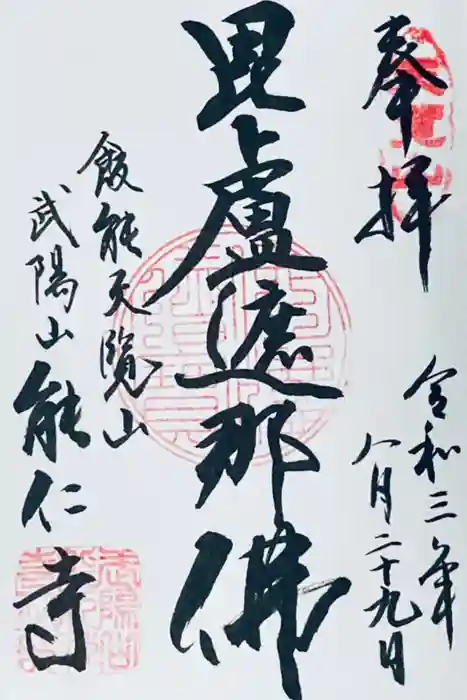 奉拝
令和三年
八月二十九日
毘盧遮那佛
飯能天覧山
武陽山能仁寺